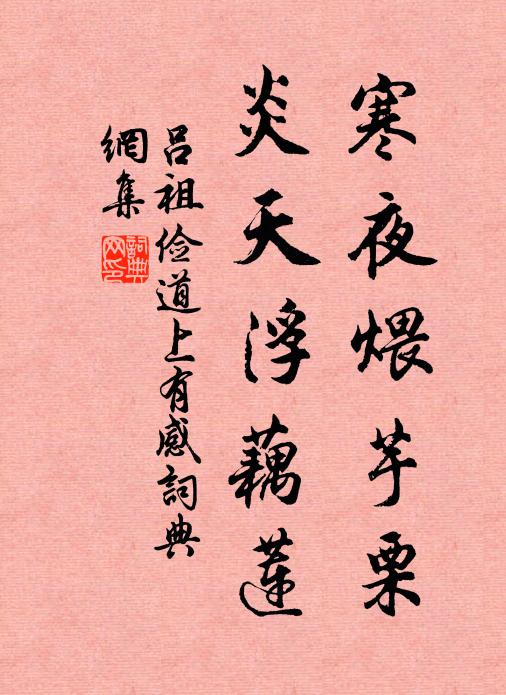 寒夜煨芋栗
炎天浮藕蓮
呂祖俭道上有感詞典
網集
詞典网印